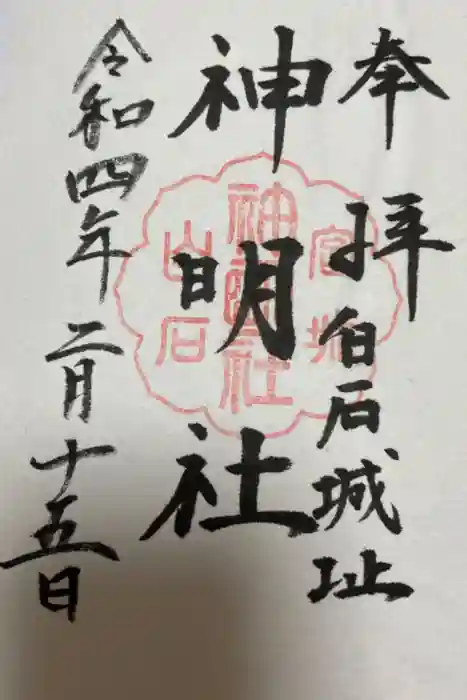 奉拝
白石城址
神明社
令和四年二月十五日
神明社